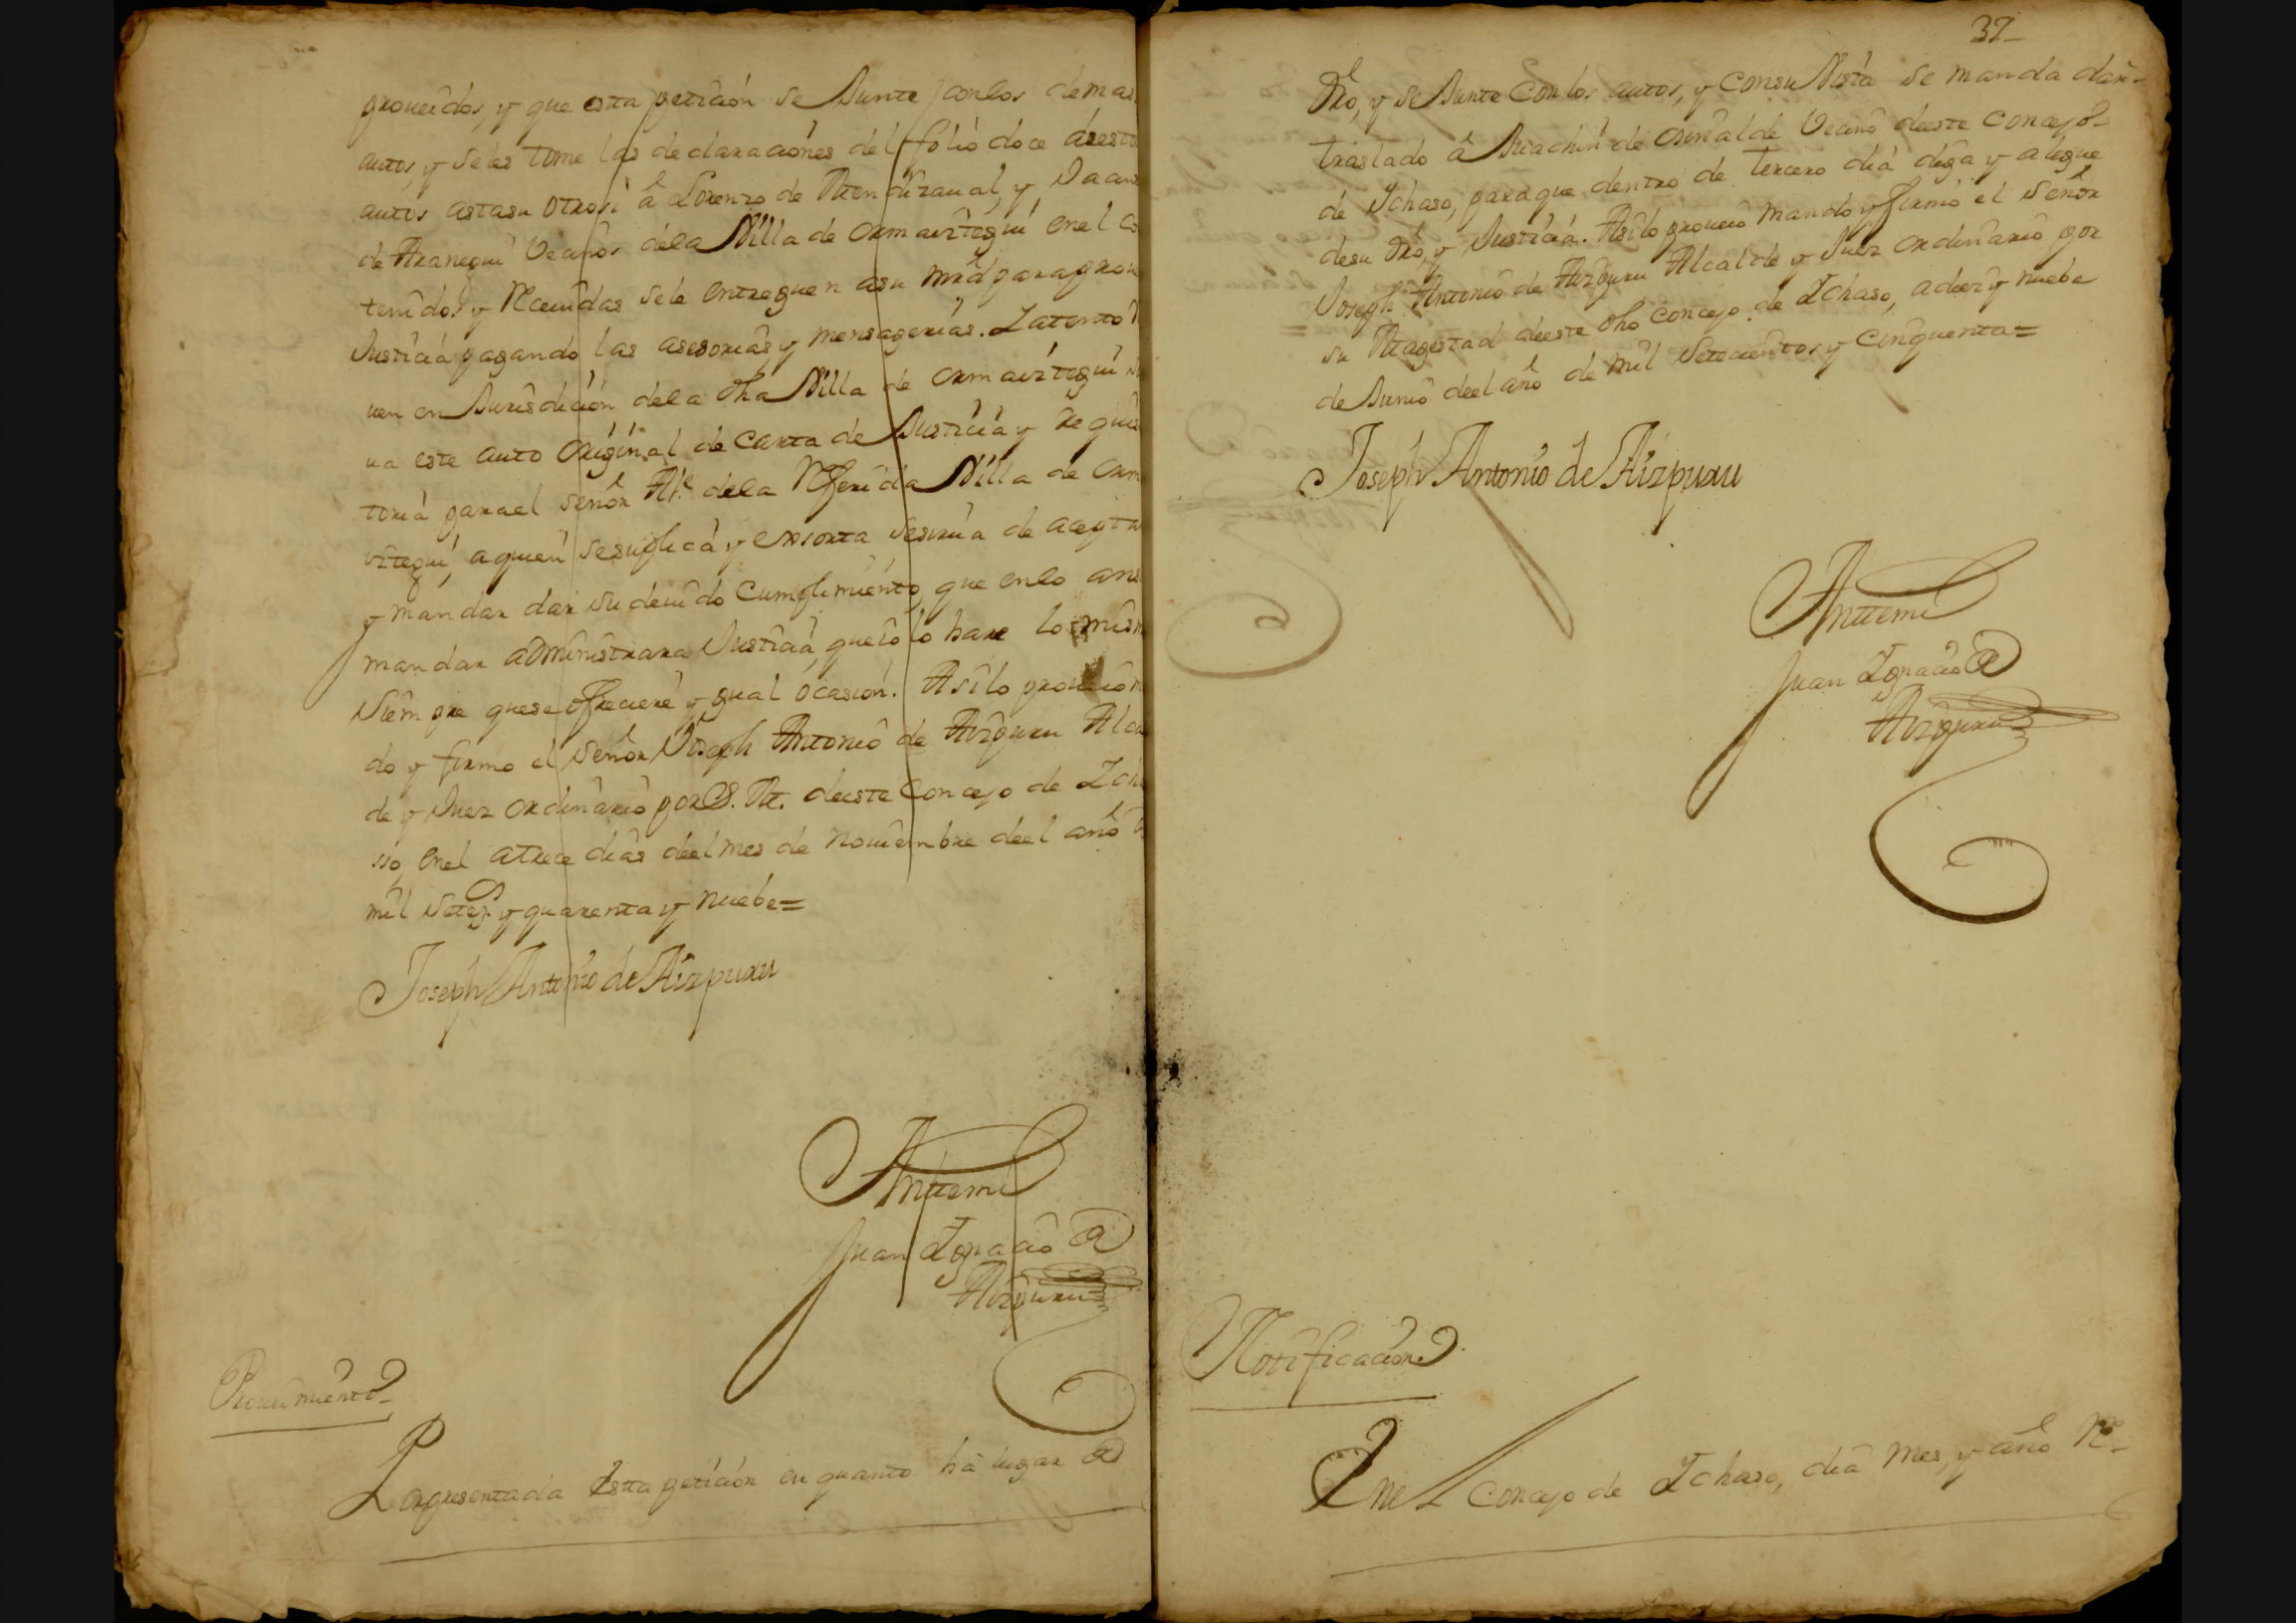 proueidos, y que esta petición se Junte con los demas
autos, y seles tome las declaraciones del folio doce desto
autos asta su otrosi â Lorenzo de Mendizaual, y
de Aranegui Vecinos dela Villa de Ormaiztegui, en el co
tenidos y Receuidas sele entreguen asu mrd para proue
Justicia pagando las asesorias y mensagerias. Y atento
uen en Jurisdición dela dha Villa de Ormaiztegui
ua este auto original de Carta de Justicia y requisi
toria para el señor Alce dela Referida Villa de Orm
iztegui, aquien sesuplica y exsorta sesirua de aceptar
y mandar dar su deuido cumplimiento, que enlo ansi
mandar administrara Justicia, que io lo hare lo mism
siempre quese ofreciere ygual ocasion. Asilo proueió m
do y firmo el señor Joseph Antonio de Aizpuru Alcal
de y Juez ordinario por S. M. deeste Concejo de Ich
sso, en el atrece dias deel mes de nouiembre deel año
mil setezs y quarenta y nuebe=
Joseph Antonio de Aizpuru
Anttemi
Juan Ignacio de
Aizpuru
Proueimiento
Por presentada Esta petición en quanto hà lugar de
37
dro, y se Junte con los autos, y consu Vista se manda dar
traslado â Juachin de Orinalde Vecino deeste Concejo
de Ichaso, paraque dentro de tercero dia diga y alegue
desu dro, y Justicia. Asilo proueió mando y firmó el señor
Joseph Antonio de Aizpuru Alcalde y Juez ordinario por
su Magestad deeste dho Concejo de Ichaso, adiez y nuebe
de Junio deel año de mil setecientos y cinquenta=
Joseph Antonio de Aizpuru
Anttemi
Juan Ignacio de
Aizpuru
Notificacion.
En el Concejo de Ichaso, dia mes, y año Re